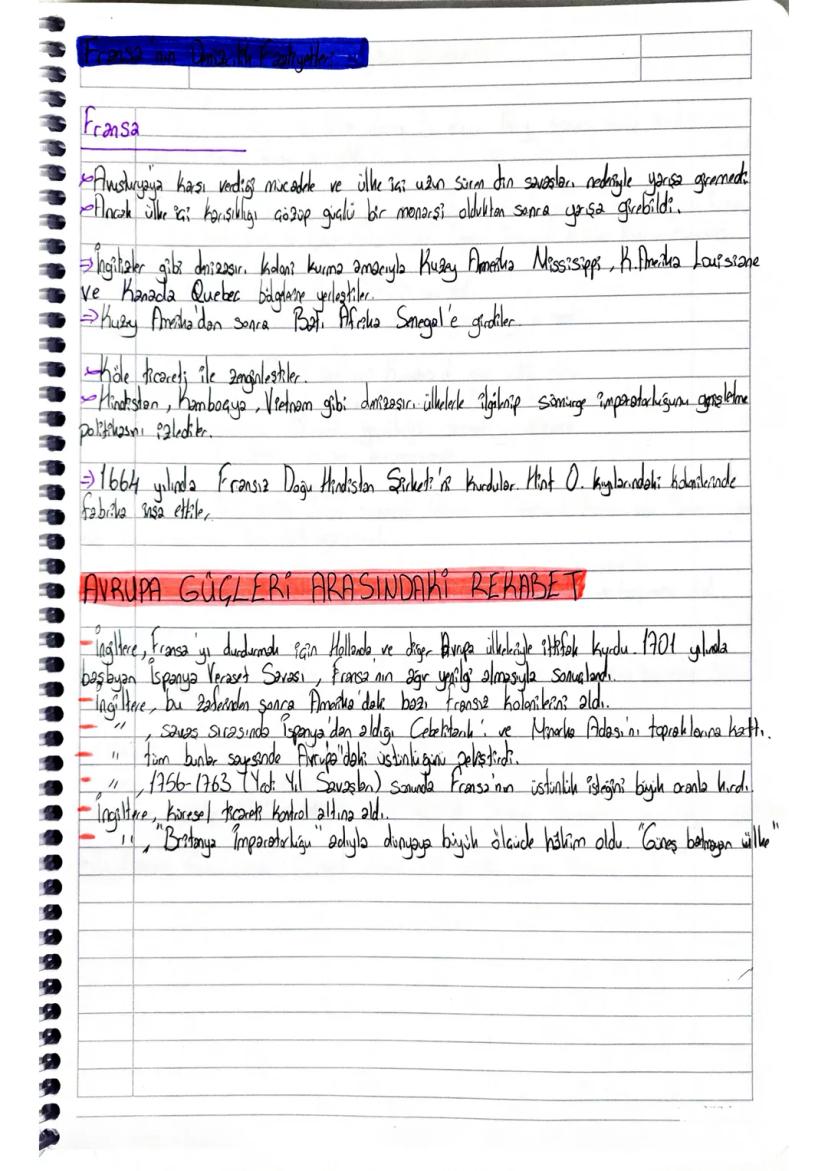 Fransa'nın Denizcilik Faaliyetleri
Fransa
Avusturyaya karşı verdiği mücadele ve ülke içi uzun süren din savaşları nedeniyle yarışa giremedi.
Ancak ülke içi karışıklığı çözüp güçlü bir monarşi olduktan sonra yarışa girebildi.
⇒ İngilizler gibi denizaşırı koloni kurma amacıyla Kuzey Amerika Mississippi, K. Amerika Louisiane
ve Kanada Quebec bölgelerine yerleştiler.
⇒ Kuzey Amerika'dan sonra Batı Afrika Senegal'e girdiler.
Köle ticareti ile zenginleştiler.
Hindistan, Kamboçya, Vietnam gibi denizaşırı ülkelerle ilgilenip sömürge imparatorluğunu genişletme
politikasını izlediler.
⇒ 1664 yılında Fransız Doğu Hindistan Şirketi'ni kurdular. Hint O. kıyılarındaki kolonilerinde
fabrika inşa ettiler.
AVRUPA GÜÇLERİ ARASINDAKİ REKABET
- İngiltere, Fransa'yı durdurmak için Hollanda ve diğer Avrupa ülkeleriyle ittifak kurdu. 1701 yılında
başlayan İspanya Veraset Savaşı, Fransa'nın ağır yenilgi almasıyla sonuçlandı.
- İngiltere, bu zaferinden sonra Amerika'daki bazı Fransız kolonilerini aldı.
- " , savaş sırasında İspanya'dan aldığı Cebelitarık'ı ve Minorka Adası'nı topraklarına kattı.
- " tüm bunlar sayesinde Avrupa'daki üstünlüğünü pekiştirdi.
- " , 1756-1763 (Yedi Yıl Savaşları) sonunda Fransa'nın üstünlük isteğini büyük oranda kırdı.
- İngiltere, küresel ticareti kontrol altına aldı.
- " , "Britanya İmparatorluğu" adıyla dünyaya büyük ölçüde hâkim oldu. "Güneş batmayan ülke"